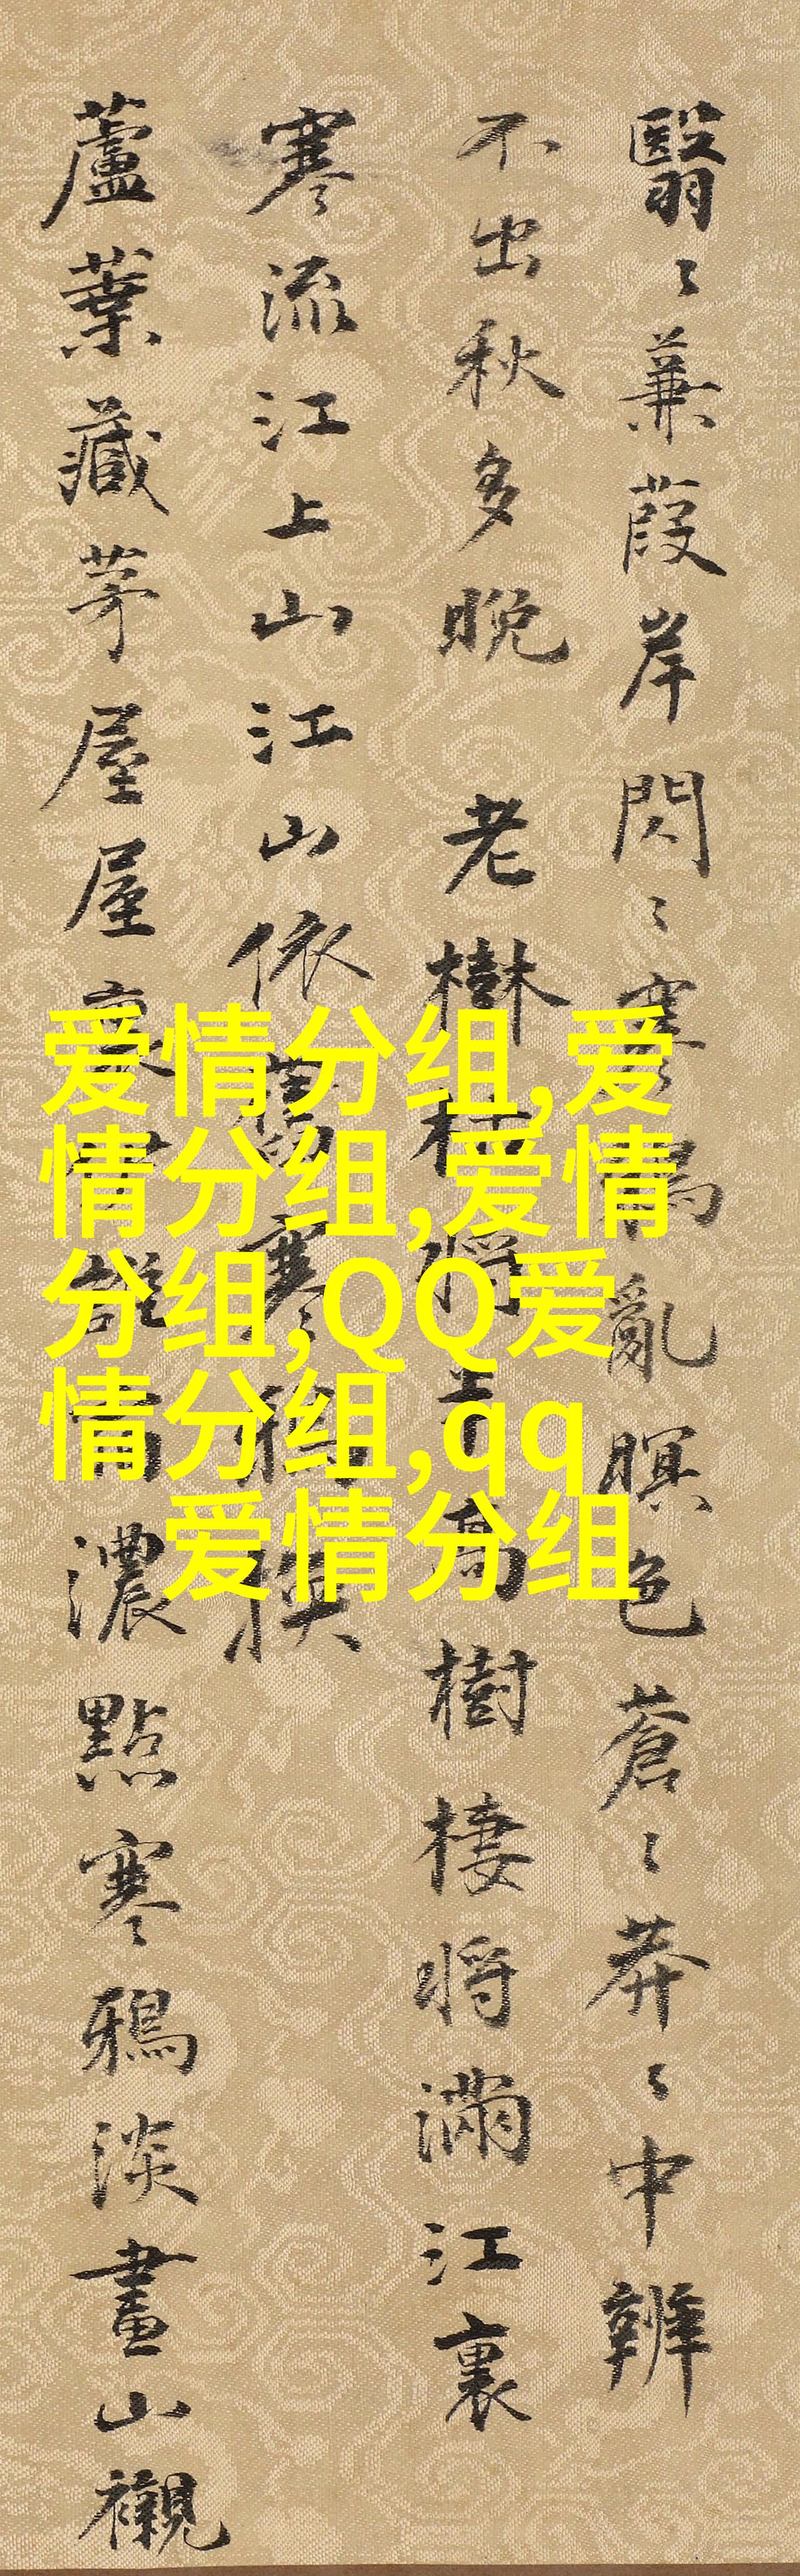 翳〻蒹葭岸閃〻寒鴉亂暝色蒼〻莽〻中辨
不出秋多晚 老樹村將半高樹棲將滿江裏
寒流江上山江山依舊寒鴉換
蘆葉藏茅屋屋裏 濃點寒鴉淡畫山襯
爱情分组,爱
情分组,爱情
分组,QQ爱
情分组,qq
爱情分组